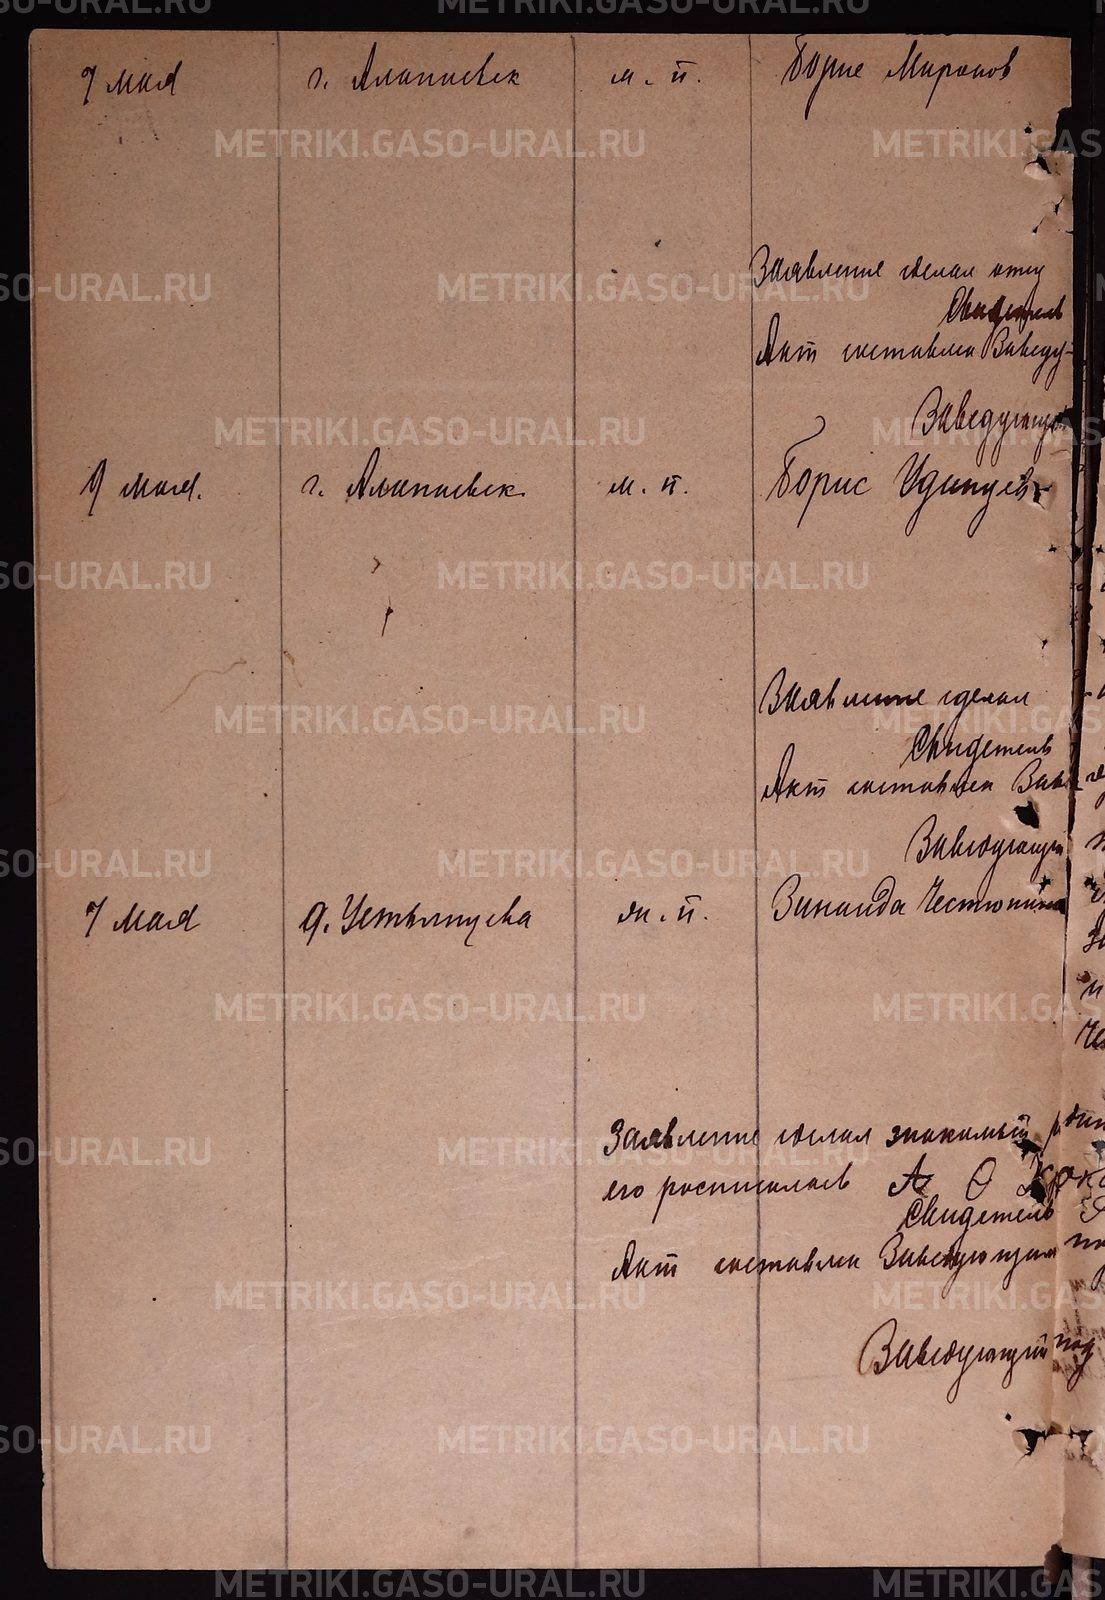 7 мая г. Алапаевск м. п. Борис Миронов
Заявление сделал отец
Свидетель
Акт составлен Заведу-
Заведующий
9 мая. г. Алапаевск. м. п. Борис Удинцев
Заявление сделал
Свидетель
Акт составлен Зав
Заведующий
7 мая д. Устьянцева ж. п. Зинаида Честюнина
Заявление сделал знакомый
его росписалась А О
Свидетель
Акт составлен Заведующим
Заведующий под
METRIKI.GASO-URAL.RU